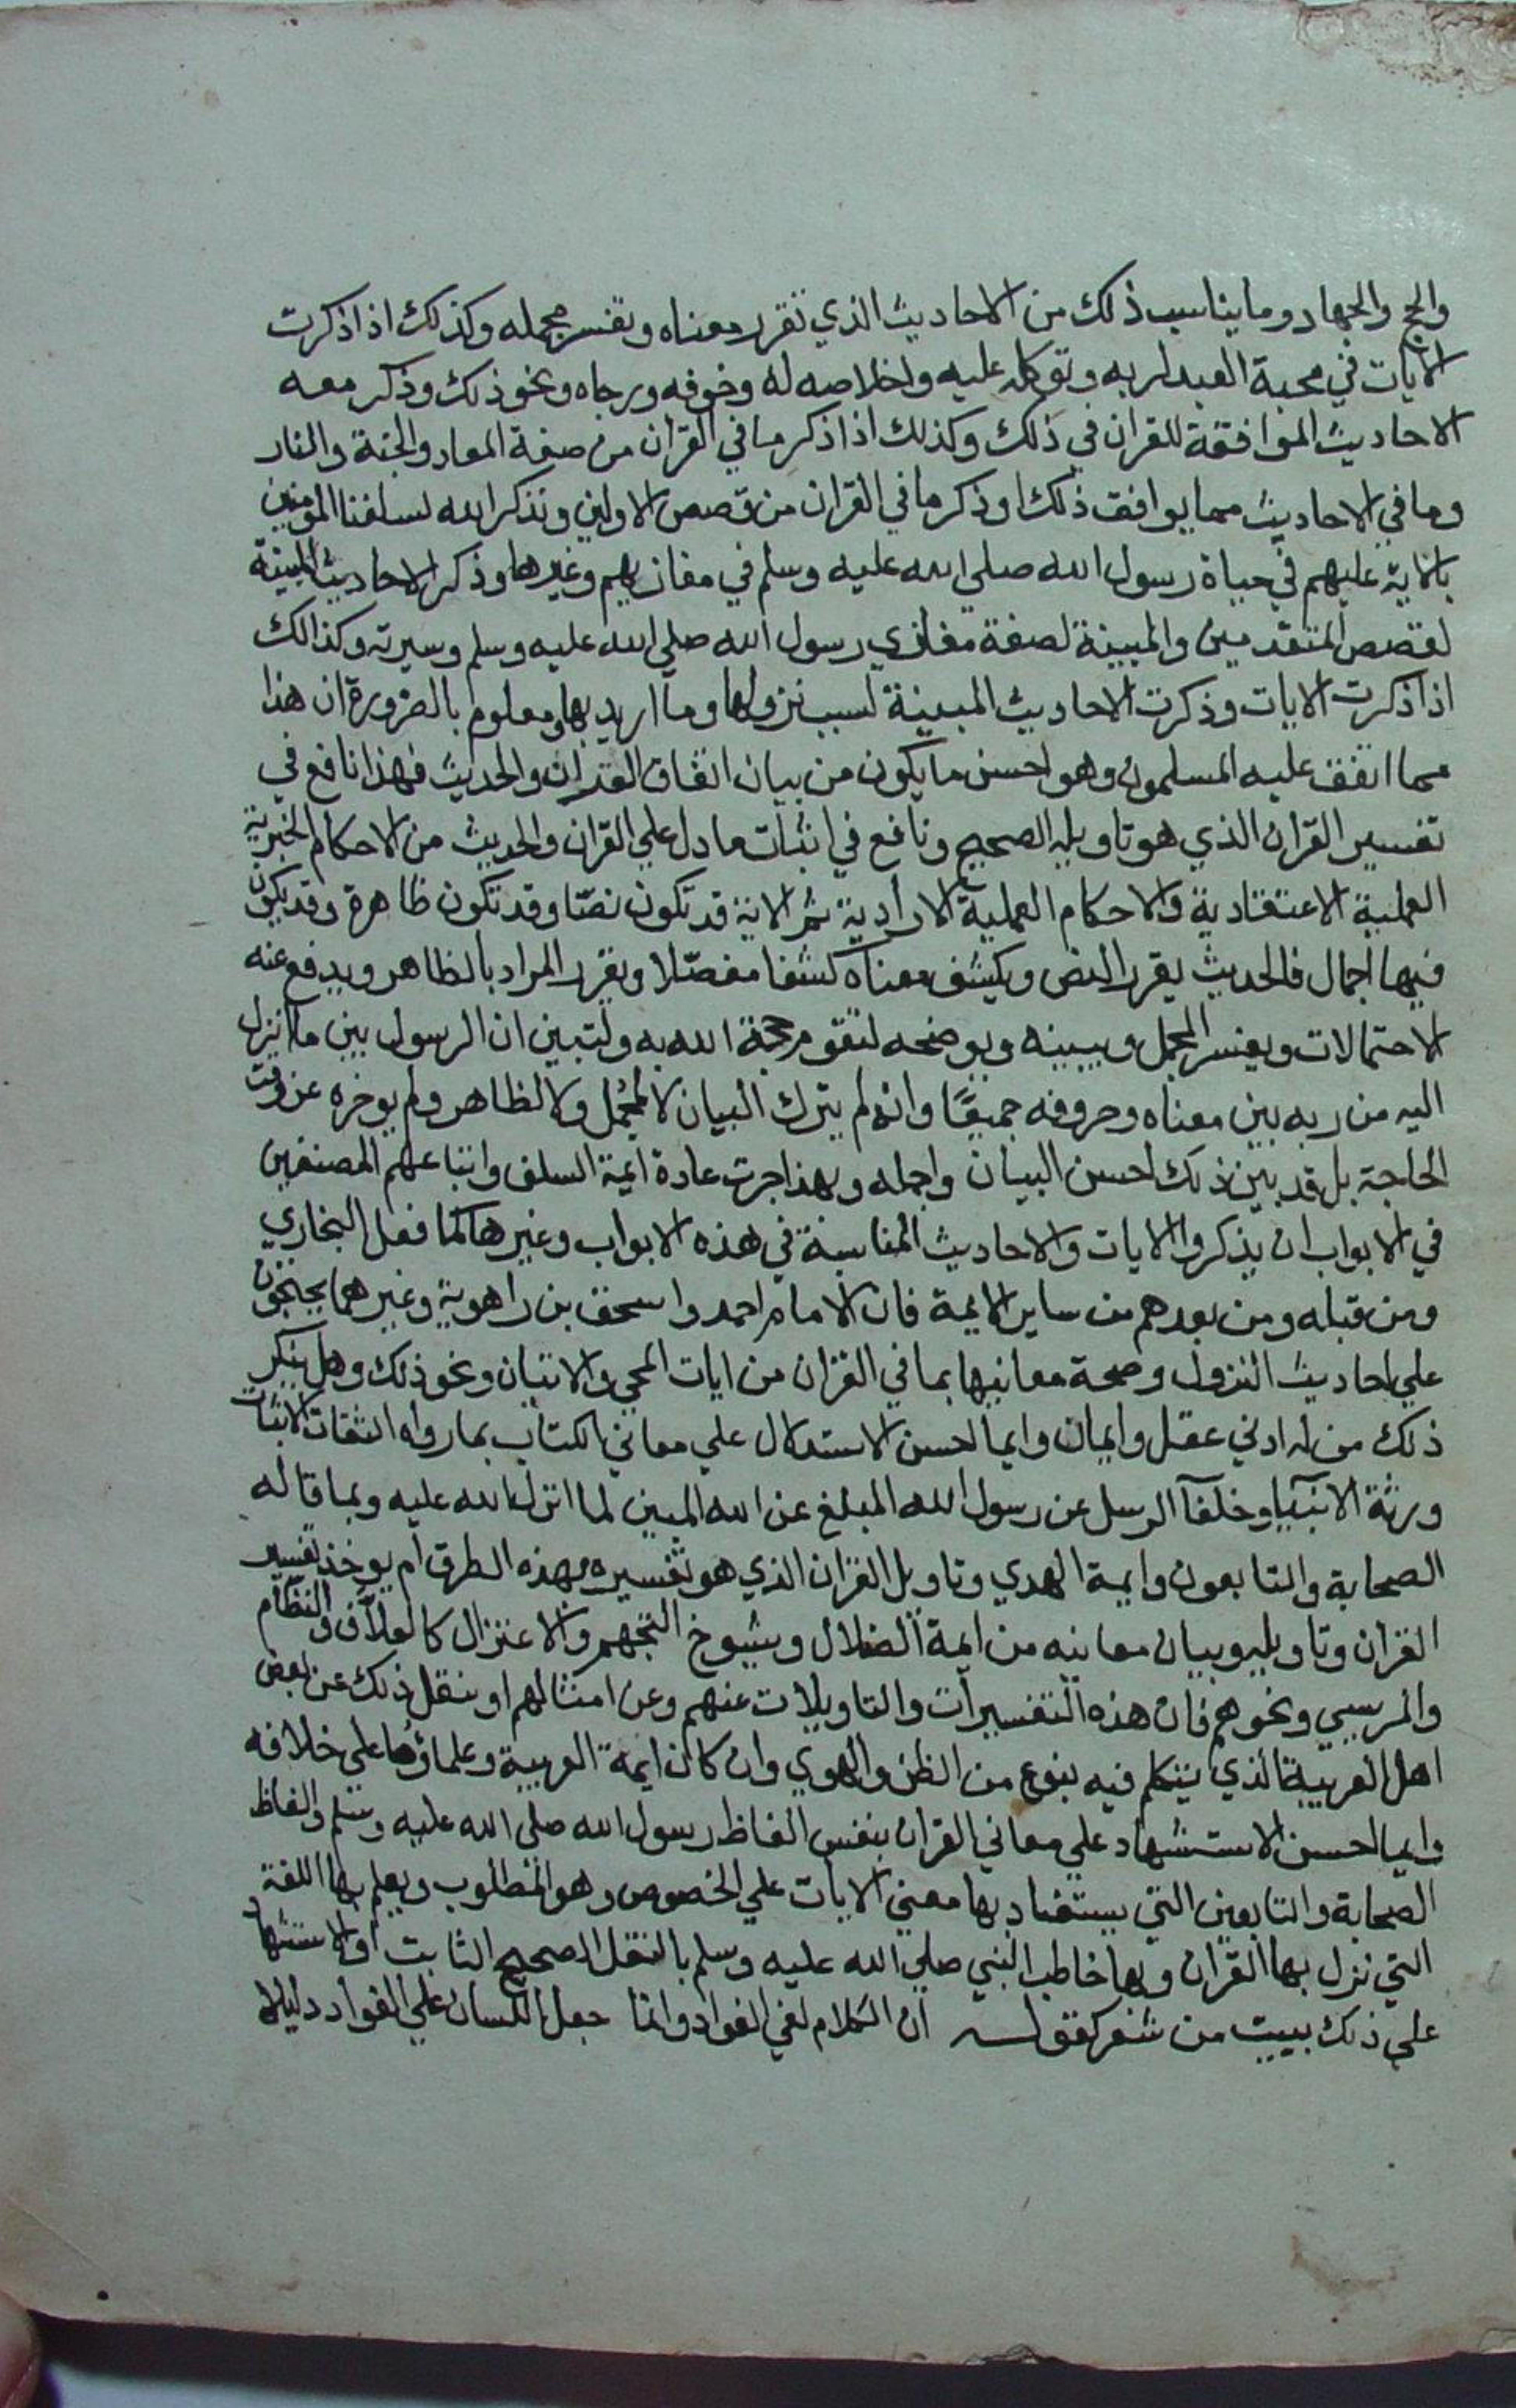 والحج والجهاد وما يناسب ذلك من الاحاديث الذي تقرر معناه وتفسر مجمله وكذلك اذا ذكرت
الآيات في محبة العبد لربه وتوكله عليه واخلاصه له وخوفه ورجاه ونحو ذلك وذكر معه
الاحاديث الموافقة للقران في ذلك وكذلك اذا ذكر ما في القران من صفة المعاد والجنة والنار
وما في الاحاديث مما يوافق ذلك او ذكر ما في القران من قصص الاولين ونذكر الله لسلفنا المومنين
بالاية عليهم في حياة رسول الله صلى الله عليه وسلم في مغازيهم وغيرها وذكر الاحاديث المبينة
لقصص المتقدمين والمبينة لصفة مغازي رسول الله صلى الله عليه وسلم وسيرته وكذالك
اذا ذكرت الايات وذكرت الاحاديث المبينة لسبب نزولها وما اريد بها ومعلوم بالضرورة ان هذا
مما اتفق عليه المسلمون وهو احسن ما يكون من بيان اتفاق القران والحديث فهذا نافع في
تفسير القران الذي هو تاويله الصحيح ونافع في اثبات ما دل علي القران والحديث من الاحكام الخبرية
العلمية الاعتقادية والاحكام العملية الارادية ثم الاية قد تكون نصّا وقد تكون ظاهرة وقد يكون
فيها اجمال فالحديث يقرر النص ويكشف معناه كشفا مفصّلا ويقرر المراد بالظاهر ويدفع عنه
الاحتمالات ويفسر المجمل ويبينه ويوضحه لتقوم حجة الله به ولتبين ان الرسول بين ما انزل
اليه من ربه بين معناه وحروفه جميعًا وانه لم يترك البيان لا لمجمل ولا لظاهر ولم يوخره عن وقت
الحاجة بل قد بين ذلك احسن البيان واجمله وبهذا جرت عادة ايمة السلف واتباعهم المصنفين
في الابواب ان يذكروا الايات والاحاديث المناسبة في هذه الابواب وغيرها كما فعل البخاري
ومن قبله ومن بعدهم من ساير الايمة فان الامام احمد واسحق بن راهوية وغيرهما يحتجون
علي احاديث النزول وصحة معانيها بما في القران من ايات المجي والاتيان ونحو ذلك وهل ينكر
ذلك من له ادني عقل وايمان وايما احسن الاستدلال علي معاني الكتاب بما رواه الثقات الاثبات
ورثة الانبيآ وخلفآ الرسل عن رسول الله المبلغ عن الله المبين لما انزل الله عليه وبما قاله
الصحابة والتابعون وايمة الهدي وتاويل القران الذي هو تفسيره بهذه الطرق ام يوخذ تفسير
القران وتاويله وبيان معانيه من ايمة الضلال وشيوخ التجهم والاعتزال كالعلآف والنظام
والمريسي ونحوهم فان هذه التفسيرات والتاويلات عنهم وعن امثالهم او ينقل ذلك عن بعض
اهل العربية الذي يتكلم فيه بنوع من الظن والهوي وان كان ايمة العربية وعلماؤها علي خلافه
وايما احسن الاستشهاد علي معاني القران بنفس الفاظ رسول الله صلى الله عليه وسلم والفاظ
الصحابة والتابعين التي يستفاد بها معني الايات علي الخصوص وهو المطلوب ويعلم بها اللغة
التي نزل بها القران وبها خاطب النبي صلي الله عليه وسلم بالنقل الصحيح الثابت او الاستشهاد
علي ذلك ببيت من شعر كقوله ان الكلام لفي الفواد وانما جعل اللسان علي الفواد دليلا